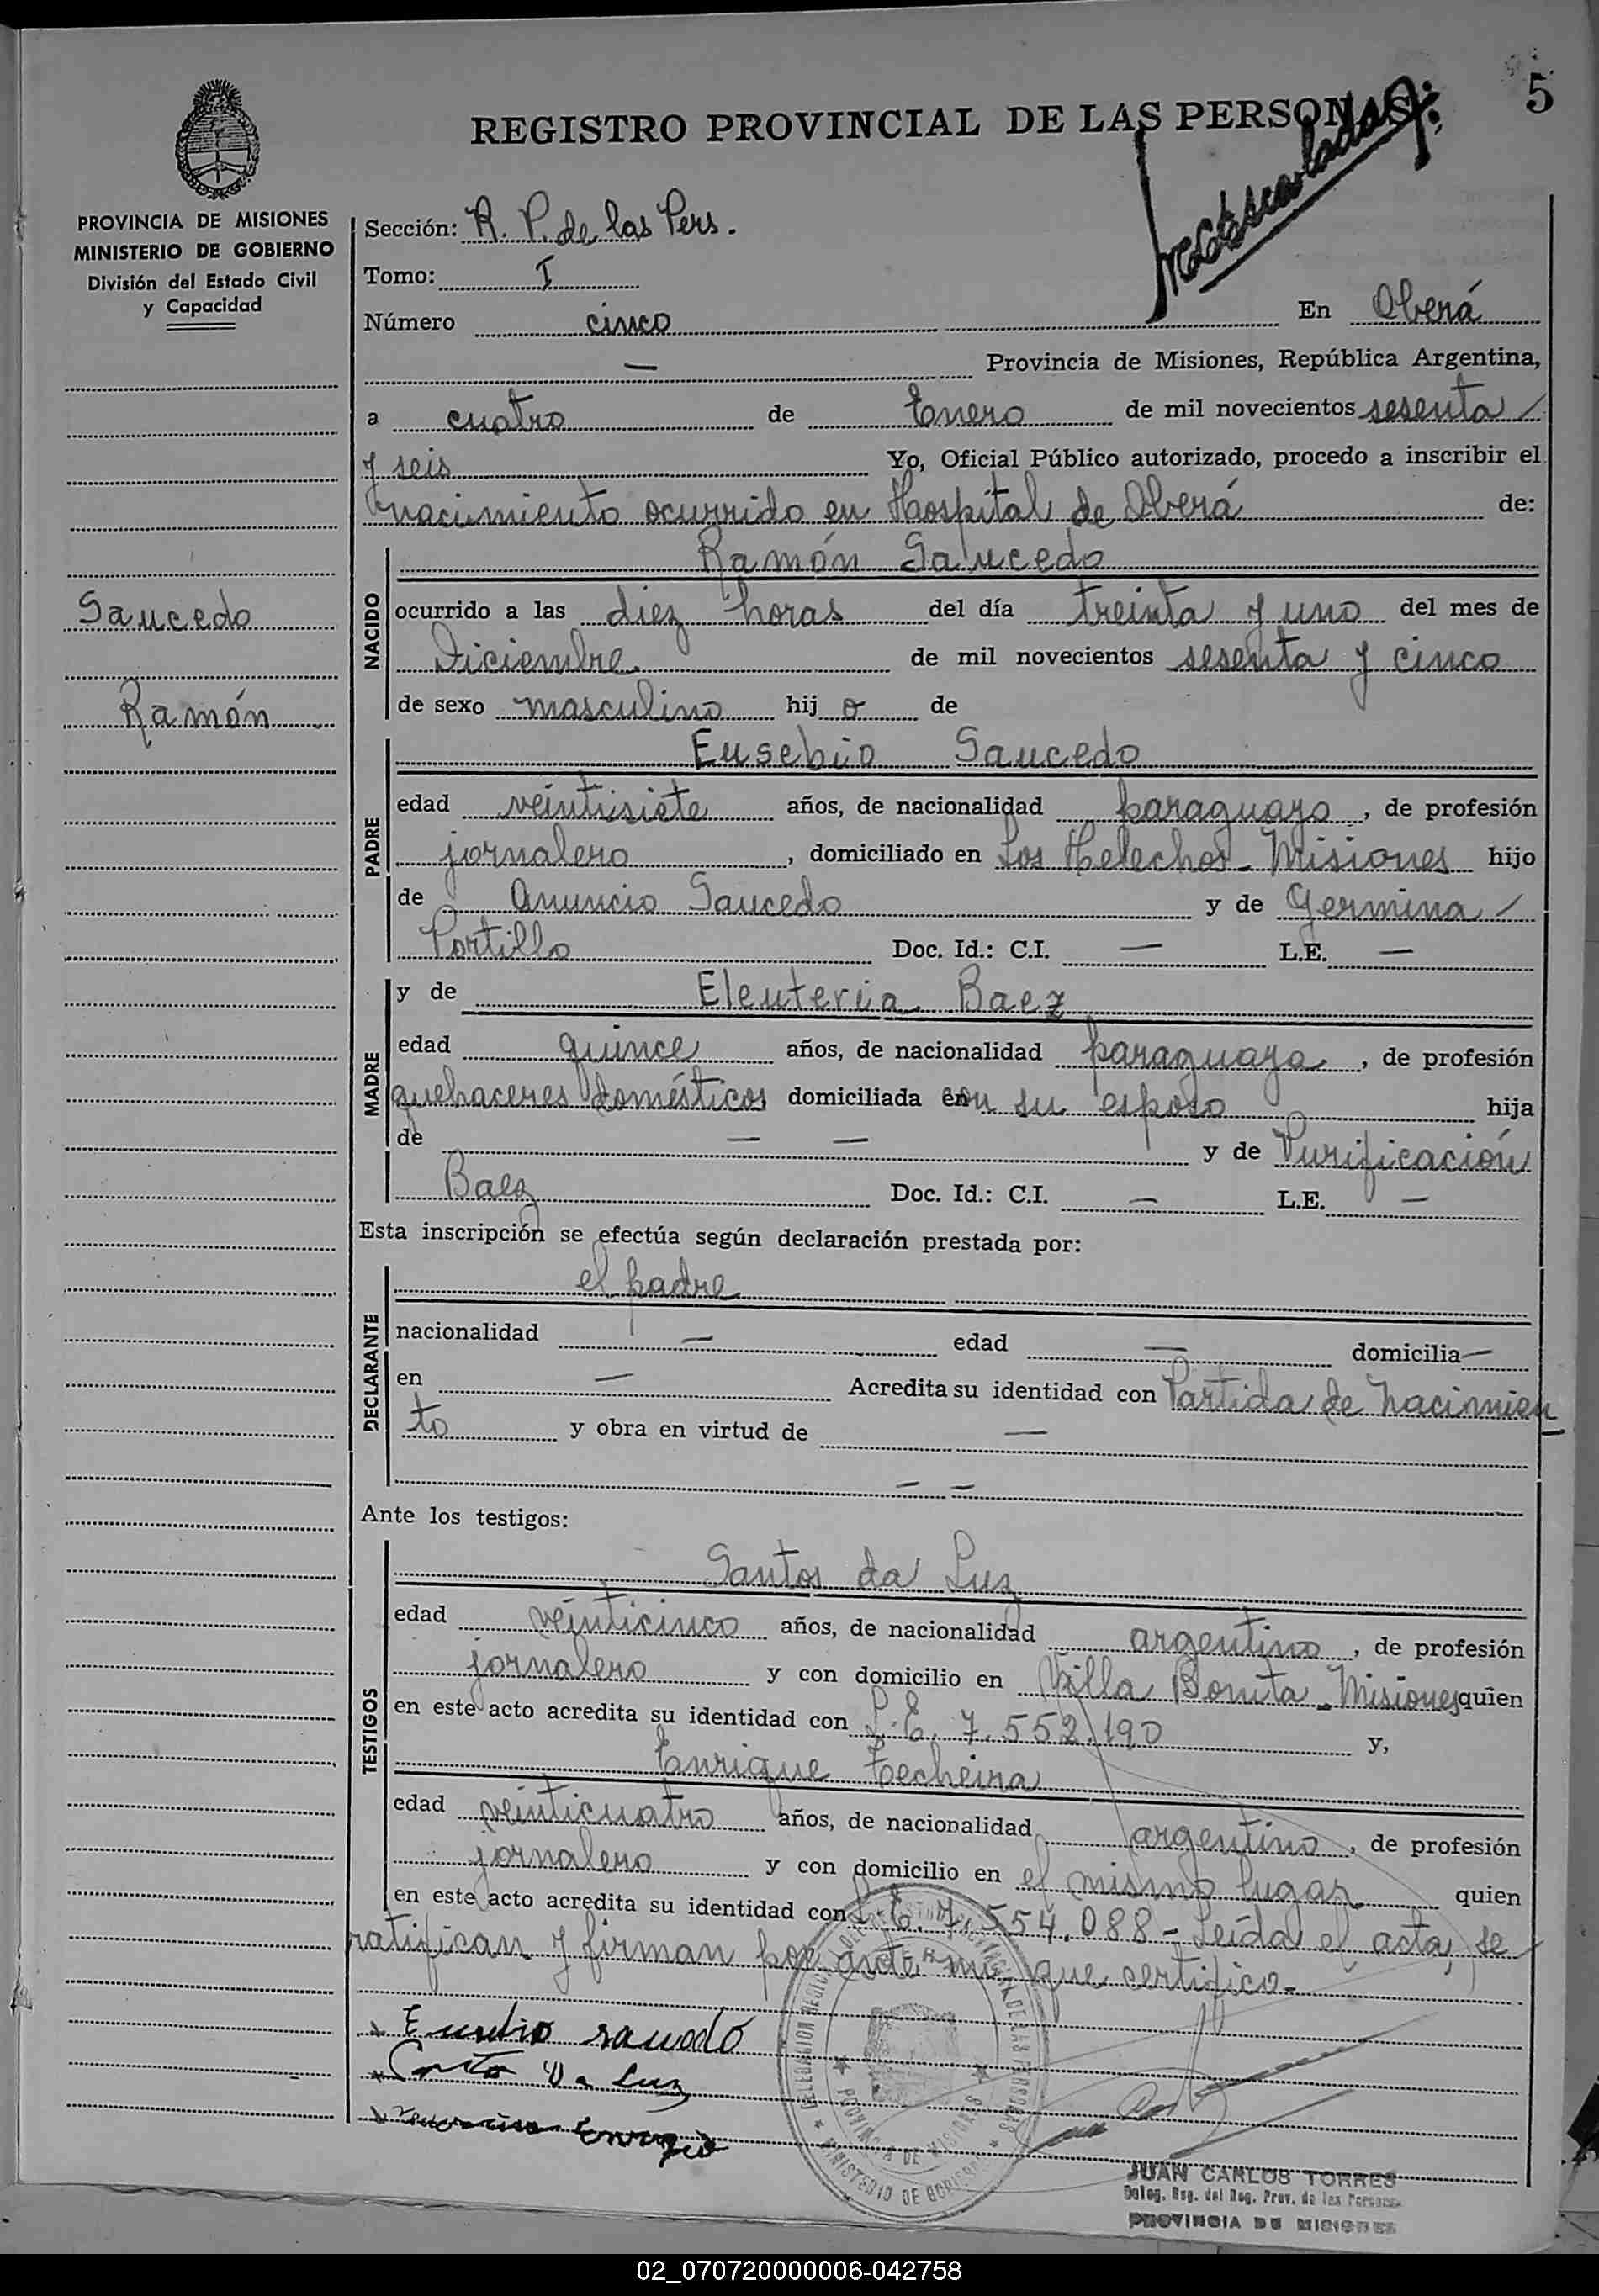 5
REGISTRO PROVINCIAL DE LAS PERSONAS
PROVINCIA DE MISIONES
MINISTERIO DE GOBIERNO
División del Estado Civil
y Capacidad
Saucedo
Ramón
Sección: R. P. de las Pers.
Tomo: I
Número cinco En Oberá
— Provincia de Misiones, República Argentina,
a cuatro de Enero de mil novecientos sesenta /
y seis Yo, Oficial Público autorizado, procedo a inscribir el
nacimiento ocurrido en Hospital de Oberá de:
NACIDO
Ramón Saucedo
ocurrido a las diez horas del día treinta y uno del mes de
Diciembre. de mil novecientos sesenta y cinco
de sexo masculino hij o de
PADRE
Eusebio Saucedo
edad veintisiete años, de nacionalidad paraguayo, de profesión
jornalero, domiciliado en Los Helechos - Misiones hijo
de Anuncio Saucedo y de Germina /
Portillo Doc. Id.: C.I. — L.E. —
MADRE
y de Eleuteria Baez
edad quince años, de nacionalidad paraguaya, de profesión
quehaceres domésticos domiciliada con su esposo hija
de — — y de Purificación
Baez Doc. Id.: C.I. — L.E. —
Esta inscripción se efectúa según declaración prestada por:
DECLARANTE
el padre
nacionalidad — edad — domicilia —
en — Acredita su identidad con Partida de Nacimien
to y obra en virtud de —
— —
Ante los testigos:
TESTIGOS
Santos da Luz
edad veinticinco años, de nacionalidad argentino, de profesión
jornalero y con domicilio en Villa Bonita - Misiones quien
en este acto acredita su identidad con L.E. 7.552.190 y,
Enrique Techeira
edad veinticuatro años, de nacionalidad argentino, de profesión
jornalero y con domicilio en el mismo lugar quien
en este acto acredita su identidad con L.E. 7.554.088 - Leída el acta, se
ratifican y firman por ante mí que certifico.-
PROVINCIA DE MISIONES
MINISTERIO DE GOBIERNO
JUAN CARLOS TORRES
Deleg. Reg. del Reg. Prov. de las Personas
PROVINCIA DE MISIONES
02_070720000006-042758